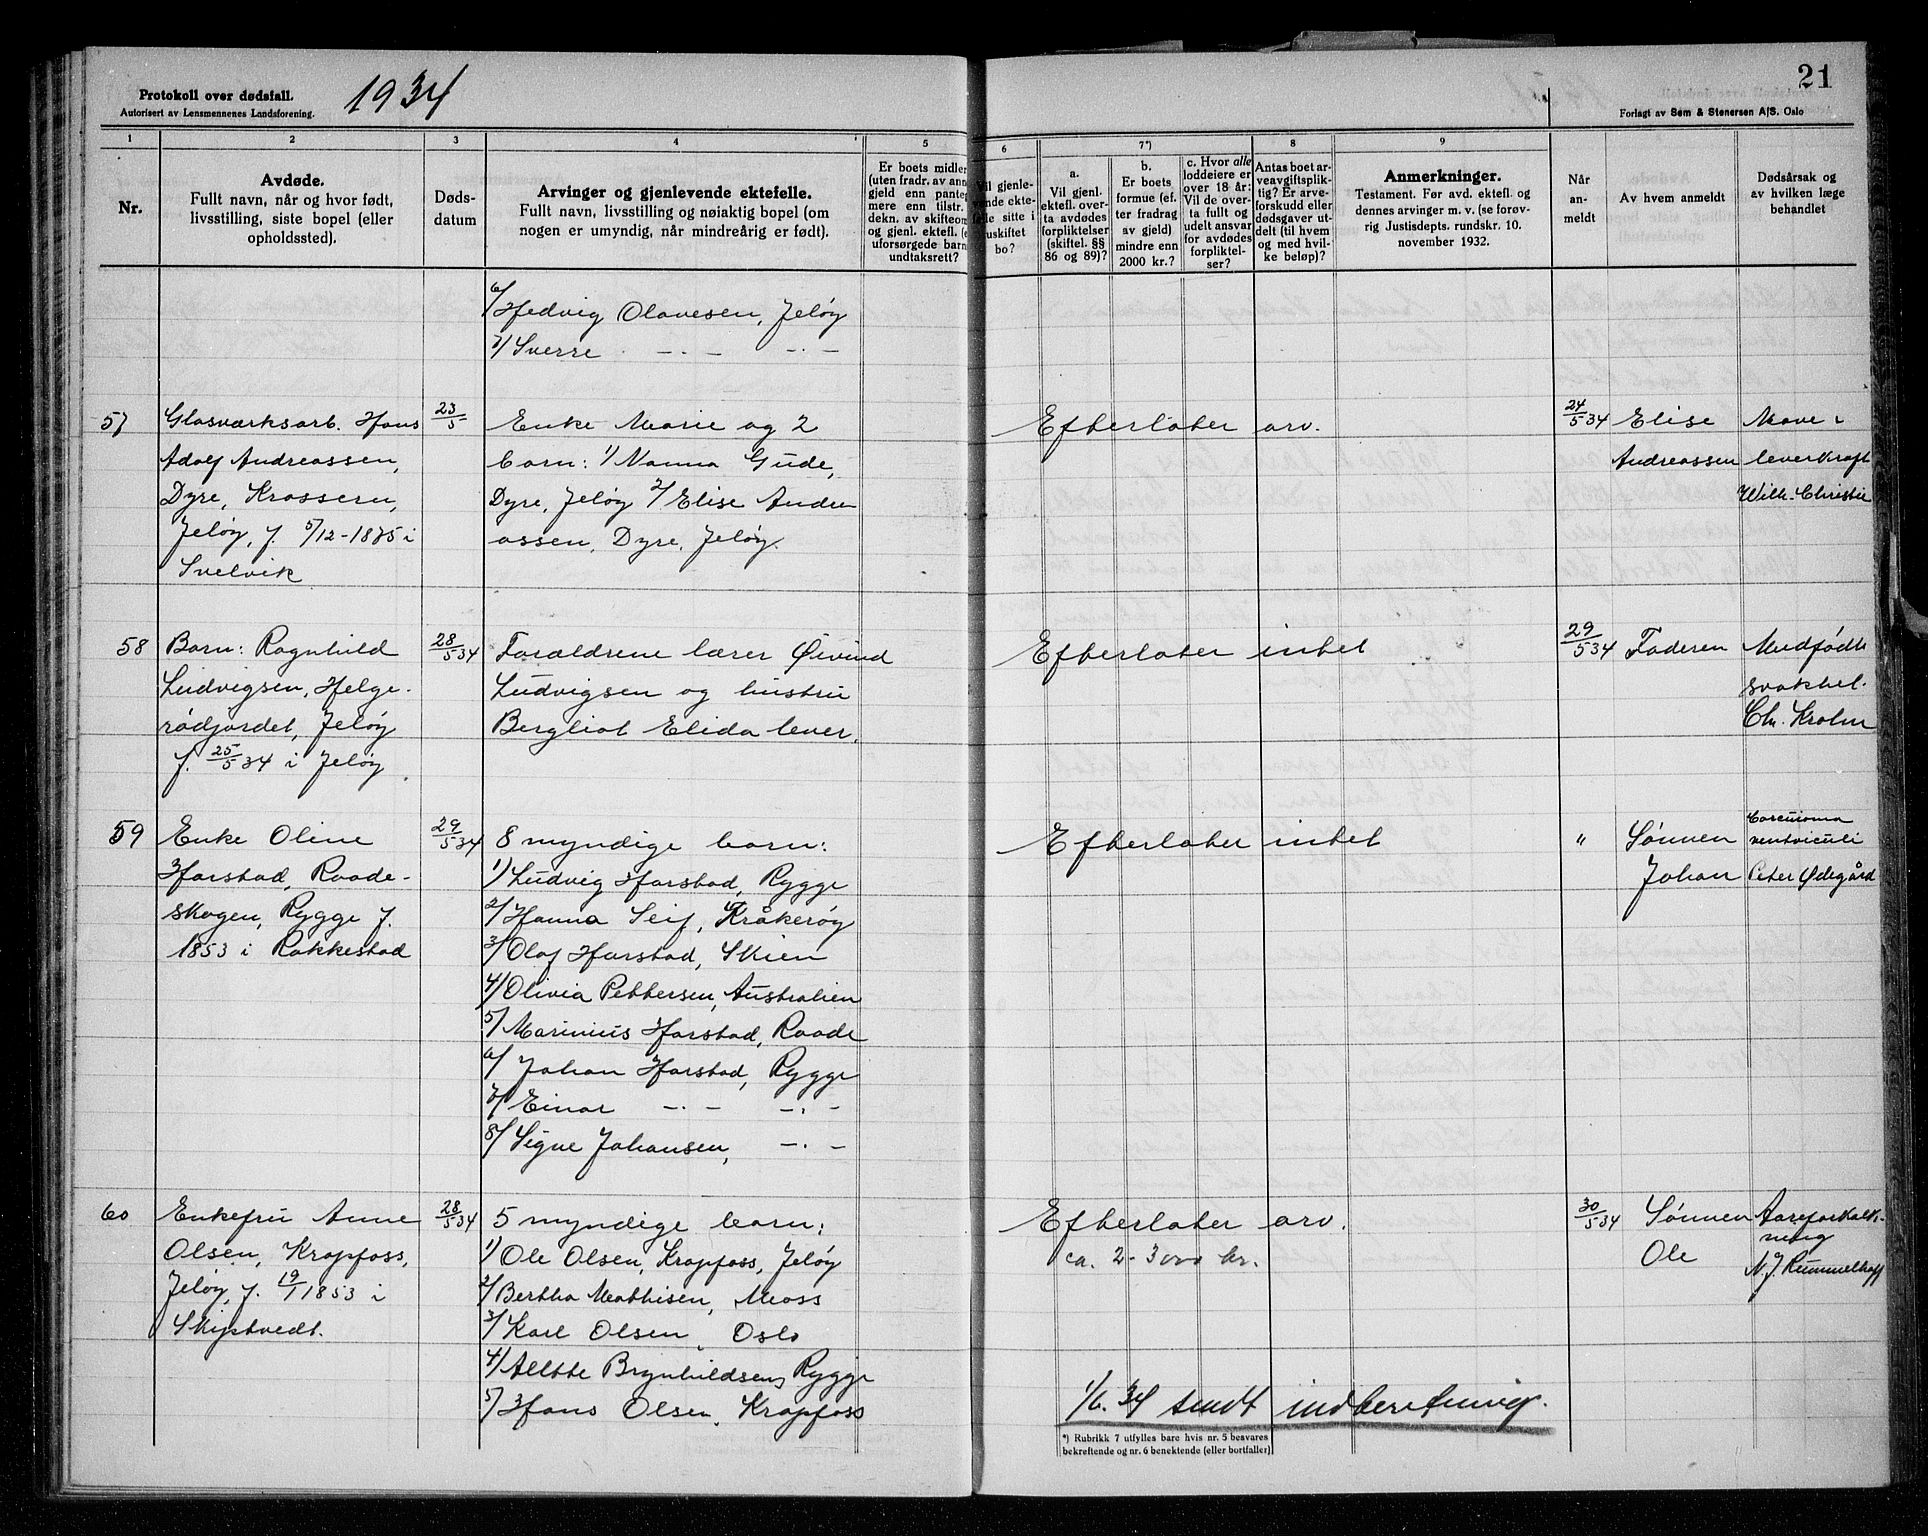 Protokoll over dødsfall.
Autorisert av Lensmennenes Landsforening.
1934
21
Forlagt av Sem & Stenersen A/S. Oslo
1
2
3
4
5
6
7*)
8
9
Nr.
Avdøde.
Fullt navn, når og hvor født,
livsstilling, siste bopel (eller
opholdssted).
Døds-
datum
Arvinger og gjenlevende ektefelle.
Fullt navn, livsstilling og nøiaktig bopel (om
nogen er umyndig, når mindreårig er født).
Er boets midler
(uten fradr. av ann
gjeld enn pante
mere enn tilstr.
dekn. av skifteom
og gjenl. ektefl. (e
uforsørgede barn
undtaksrett?
Vil gjenle-
vende ekte-
felle sitte i
uskiftet
bo?
a.
Vil gjenl.
ektefl. over-
ta avdødes
forpliktelser
(skiftel. §§
86 og 89)?
b.
Er boets
formue (ef-
ter fradrag
av gjeld)
mindre enn
2000 kr.?
c. Hvor alle
loddeiere er
over 18 år:
Vil de over-
ta fullt og
udelt ansvar
for avdødes
forpliktel-
ser?
Antas boet ar-
veavgiftsplik-
tig? Er arve-
forskudd eller
dødsgaver ut-
delt (til hvem
og med hvil-
ke beløp)?
Anmerkninger.
Testament. Før avd. ektefl. og
dennes arvinger m. v. (se forøv-
rig Justisdepts. rundskr. 10.
november 1932.
Når
an-
meldt
Av hvem anmeldt
Dødsårsak og
av hvilken læge
behandlet
6/ Hedvig Olavesen, Jeløy
7/ Sverre -.- -.-
57
Glasværksarb. Hans
Adolf Andreassen,
Dyre, Krossern,
Jeløy, f. 5/12-1875 i
Svelvik
23/5
Enke Marie og 2
barn: 1/ Nanna Gude,
Dyre, Jeløy 2/ Elise Andre
assen, Dyre, Jeløy.
Efterlater arv.
24/5 34
Elise
Andreassen
Mave i
leverkræft
Wilh. Christie
58
Barn: Ragnhild
Ludvigsen, Helge-
rødjordet, Jeløy
f. 25/5 34 i Jeløy
28/5 34
Forældrene lærer Øivind
Ludvigsen og hustru
Bergliot Elida lever.
Efterlater intet
29/5 34
Faderen
Medfødt
svakhet.
Chr. Krohn
59
Enke Oline
Harstad, Raade-
skogen, Rygge f.
1853 i Rakkestad
29/5 34
8 myndige barn:
1) Ludvig Harstad, Rygge
2/ Hanna Seif, Kråkerøy
3/ Olaf Harstad, Skien
4/ Olivia Pettersen, Australien
5/ Marinius Harstad, Raade
6/ Johan Harstad, Rygge
7/ Einar -.- -.-
8/ Signe Johansen, -.-
Efterlater intet
"
Sønnen
Johan
Carcinoma
ventriculi
Peter Ødegård
60
Enkefru Anne
Olsen, Krapfoss,
Jeløy, f. 19/1 1853 i
Skiptvedt.
28/5 34
5 myndige barn:
1) Ole Olsen, Krapfoss, Jeløy
2/ Bertha Mathisen, Moss
3/ Karl Olsen, Oslo
4/ Brynhildsen, Rygge
5/ Hans Olsen, Krapfoss
Efterlater arv.
ca. 2-3000 kr.
30/5 34
Sønnen
Ole
Aareforkalk-
ning
N. J. Rummelhoff
1/6. 34 sendt indberetning.
*) Rubrikk 7 utfylles bare hvis nr. 5 besvares
bekreftende og nr. 6 benektende (eller bortfaller)